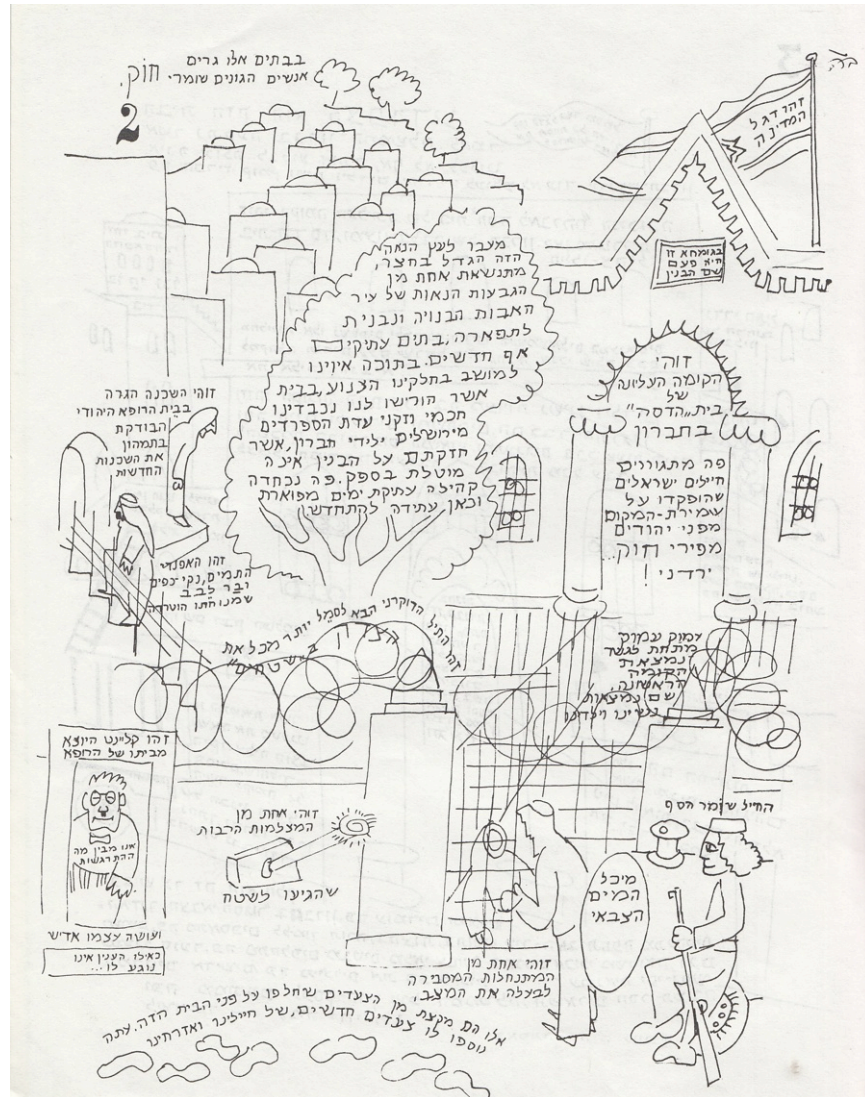 בבתים אלו גרים
אנשים הגונים שומרי חוק.
2
זהו דגל
המדינה
בגומחא זו
היא פעם
שם הבנין
מעבר לעץ הנאה
הזה הגדל בחצר,
מתנשאת אחת מן
הגבעות הנאות של עיר
האבות הבנויה ונבנית
לתפארה, בתים עתיקים
אף חדשים. בתוכה איוינו
למושב בחלקינו הצנוע, בבית
אשר הורישו לנו נכבדינו
חכמי וזקני עדת הספרדים
מירושלים ילידי חברון, אשר
חזקתם על הבנין אינה
מוטלת בספק. פה נכחדה
קהילה עתיקת ימים מפוארת
וכאן עתידה להתחדש
זוהי
הקומה העליונה
של
בית "הדסה"
בחברון
פה מתגוררים
חיילים ישראלים
שהופקדו על
שמירת-המקום
מפני יהודים
מפירי חוק...
ירדני!
זוהי השכנה הגרה
בבית הרופא היהודי
הבודקת
בתמהון
את השכנות
החדשות
זהו האפנדי
התמים, נקי כפים
ובר לבב
שמנוחתו הוטרדה
זהו התיל הדוקרני הבא לסמל יותר מכל את
המצור
ב"שטחים"
עמוק עמוק
מתחת לגשר
נמצאת
הקומה
הראשונה,
שם נמצאות
נשינו וילדינו
זהו קליינט היוצא
מביתו של הרופא
אנו מבין מה
ההתרגשות
ועושה עצמו אדיש
כאילו הענין אינו
נוגע לו...
זוהי אחת מן
המצלמות הרבות
שהגיעו לשטח
החייל שומר הסף
מיכל
המים
הצבאי
זוהי אחת מן
המתנחלות המסבירה
לבעלה את המצב.
אלו הם מקצת מן הצעדים שחלפו על פני הבית הזה. עתה
נוספו לו צעדים חדשים, של חיילינו ואזרחינו